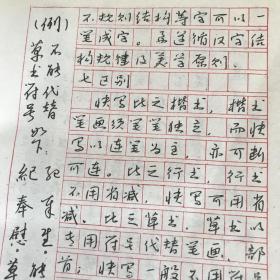 不规则结构等字可以一
笔成字。 遵循汉字结
构规律及美学原则。
七区别
快写比之楷书，楷书
笔画须笔笔独立，而快
写以连笔为主，亦可断
可连。比之行书，行书
不用省减，快写可用省
减。比之草书，草书以
专用符号代替笔画、部
首；快写一般不用
（例）
不能代替
草书符号如下：
纪奉慰草